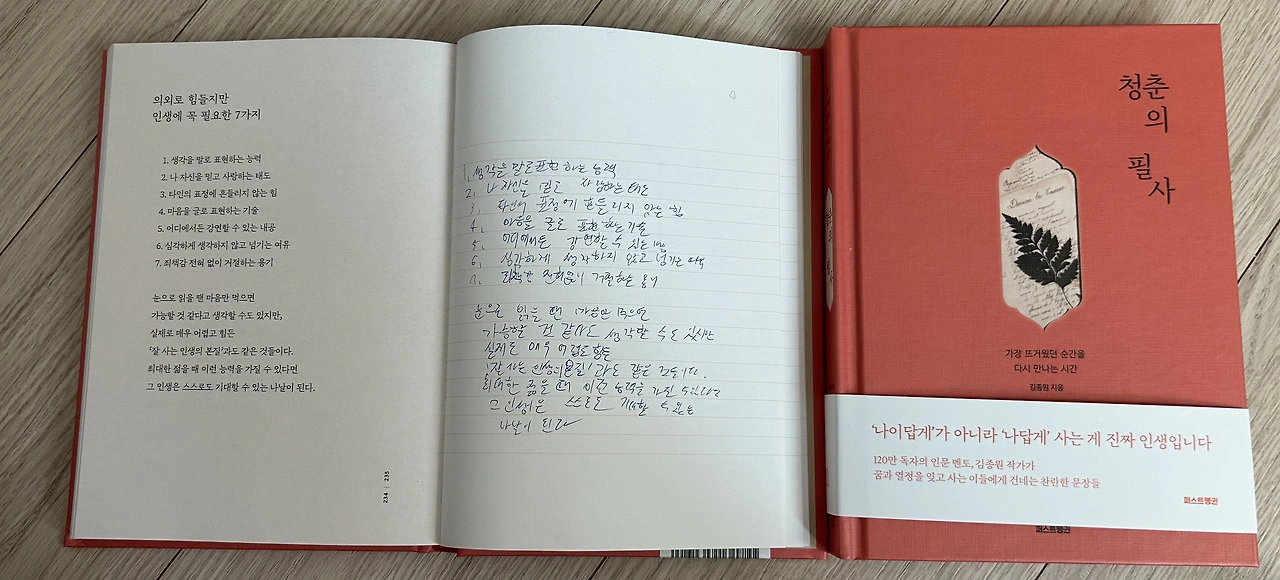 의외로 힘들지만
인생에 꼭 필요한 7가지
1. 생각을 말로 표현하는 능력
2. 나 자신을 믿고 사랑하는 태도
3. 타인의 표정에 흔들리지 않는 힘
4. 마음을 글로 표현하는 기술
5. 어디에서든 강연할 수 있는 내공
6. 심각하게 생각하지 않고 넘기는 여유
7. 죄책감 전혀 없이 거절하는 용기
눈으로 읽을 땐 마음만 먹으면
가능할 것 같다고 생각할 수도 있지만,
실제로 매우 어렵고 힘든
'잘 사는 인생의 본질'과도 같은 것들이다.
최대한 젊을 때 이런 능력을 가질 수 있다면
그 인생은 스스로도 기대할 수 있는 나날이 된다.
234 | 235
1. 생각을 말로 표현하는 능력
2. 나 자신을 믿고 사랑하는 태도
3. 타인의 표정에 흔들리지 않는 힘
4. 마음을 글로 표현하는 기술
5. 어디에서든 강연할 수 있는
6. 심각하게 생각하지 않고 넘기는 여유
7. 죄책감 전혀없이 거절하는 용기
눈으로 읽을 땐 마음만 먹으면
가능할 것 같다고 생각할 수도 있지만
실제로 매우 어렵고 힘든
'잘 사는 인생의 본질'과도 같은 것들이다.
최대한 젊을 때 이런 능력을 가질 수 있다면
그 인생은 스스로도 기대할 수 있는
나날이 된다
청춘
의
필
사
가장 뜨거웠던 순간을
다시 만나는 시간
김종원 지음
'나이답게'가 아니라 '나답게' 사는 게 진짜 인생입니다
120만 독자의 인문 멘토, 김종원 작가가
꿈과 열정을 잊고 사는 이들에게 건네는 찬란한 문장들
퍼스트펭귄
퍼스트펭귄